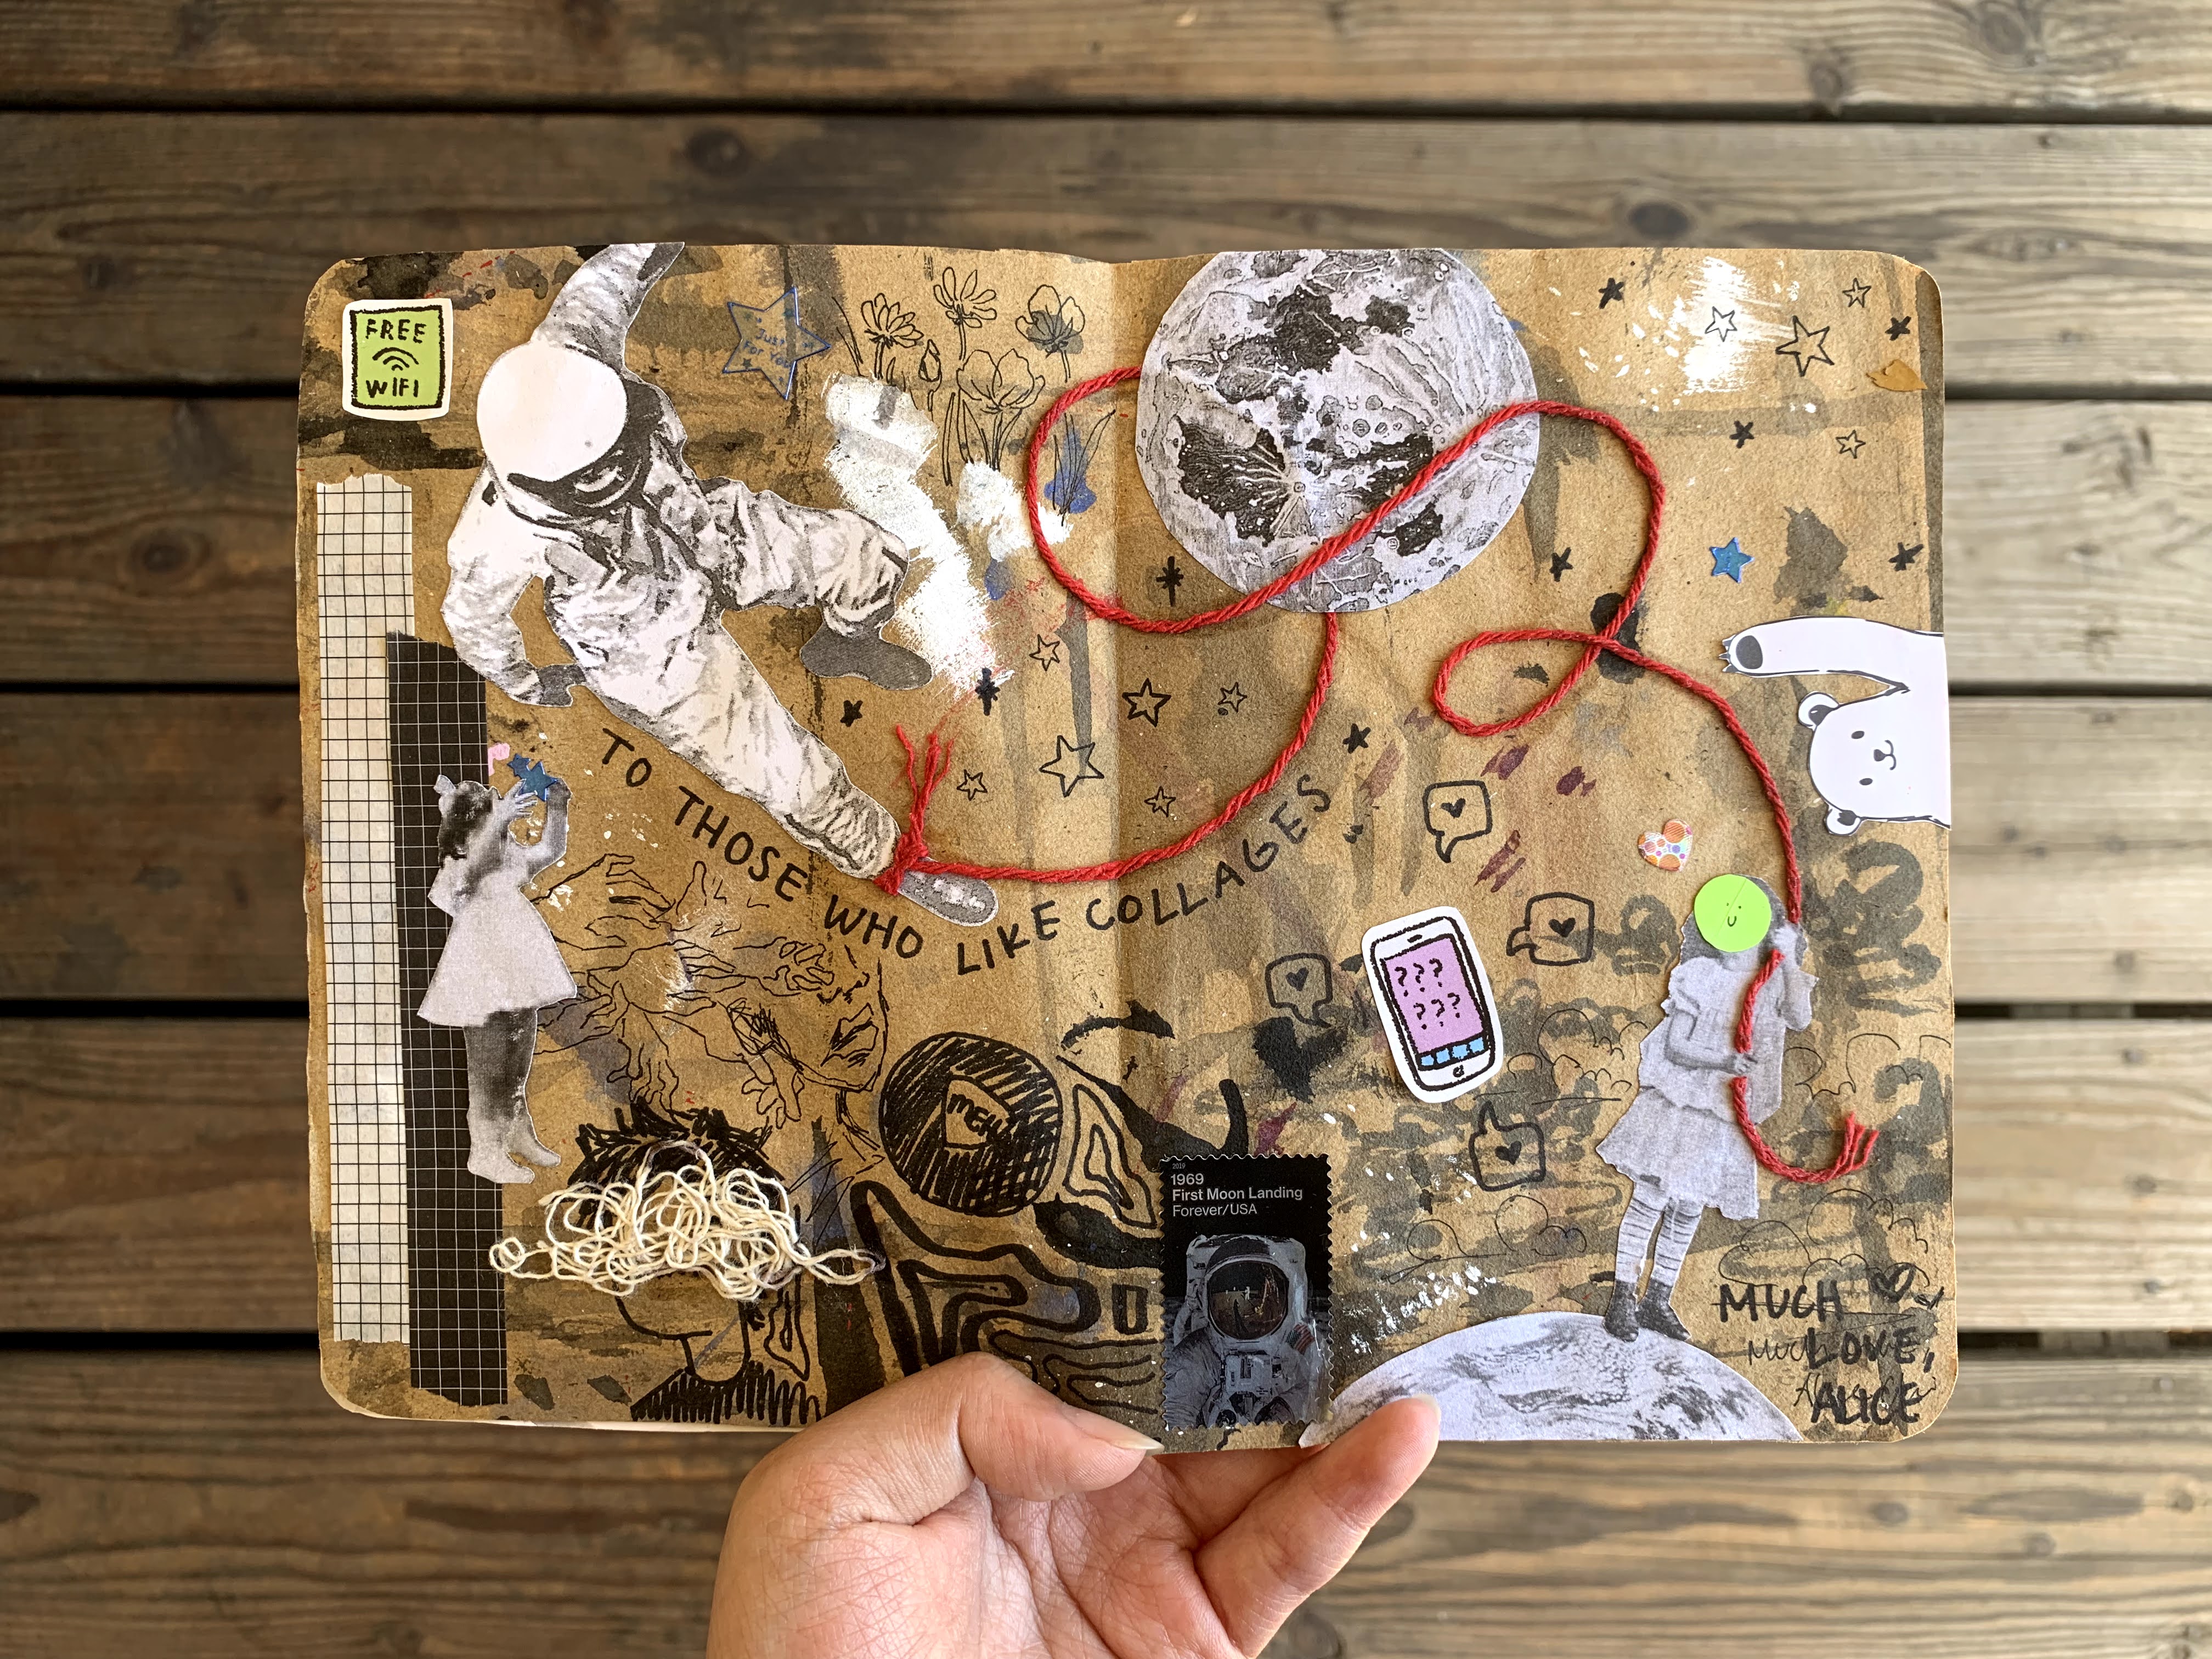 FREE
WIFI
Just
For You
TO THOSE WHO LIKE COLLAGES
???
???
MEH
2019
1969
First Moon Landing
Forever/USA
MUCH
LOVE,
ALICE